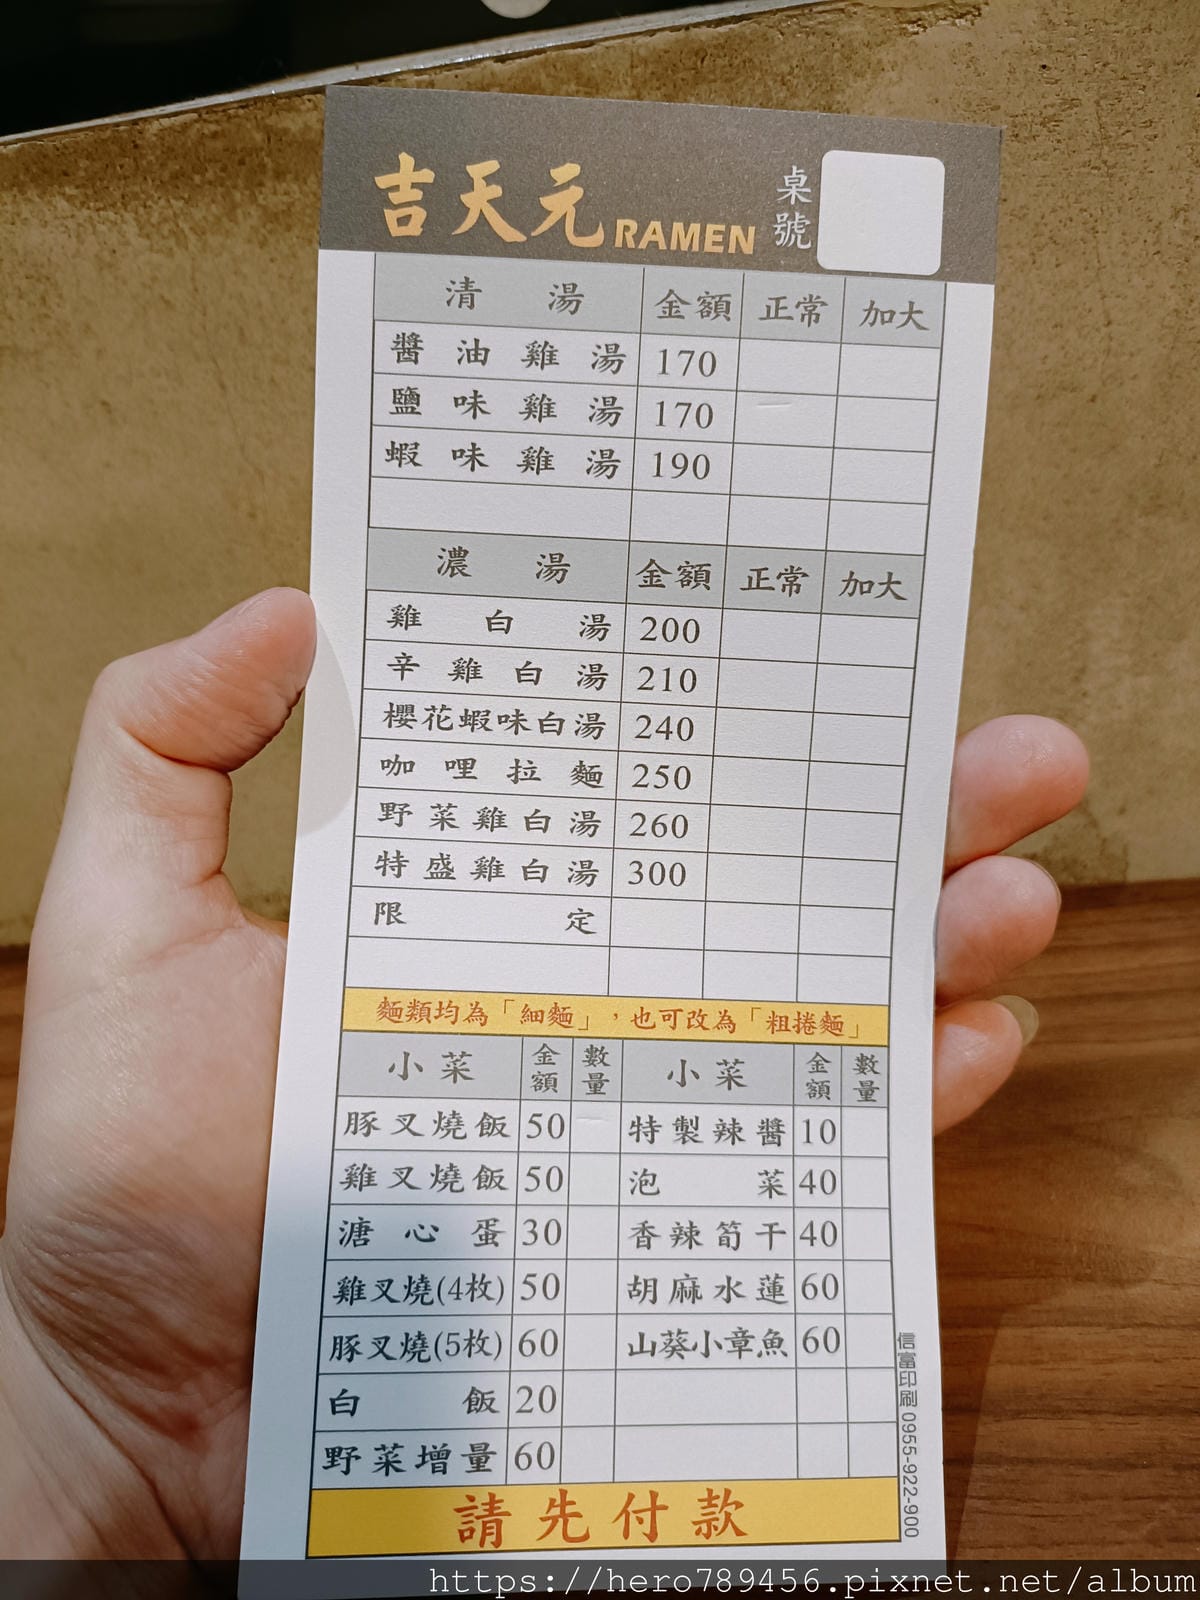 吉天元 RAMEN 桌號
清湯 金額 正常 加大
醬油雞湯 170
鹽味雞湯 170
蝦味雞湯 190
濃湯 金額 正常 加大
雞白湯 200
辛雞白湯 210
櫻花蝦味白湯 240
咖哩拉麵 250
野菜雞白湯 260
特盛雞白湯 300
限定
麵類均為「細麵」，也可改為「粗捲麵」
小菜 金額 數量 小菜 金額 數量
豚叉燒飯 50 特製辣醬 10
雞叉燒飯 50 泡菜 40
溏心蛋 30 香辣筍干 40
雞叉燒(4枚) 50 胡麻水蓮 60
豚叉燒(5枚) 60 山葵小章魚 60
白飯 20
野菜增量 60
請先付款
信富印刷 0955-922-900
https://hero789456.pixnet.net/album